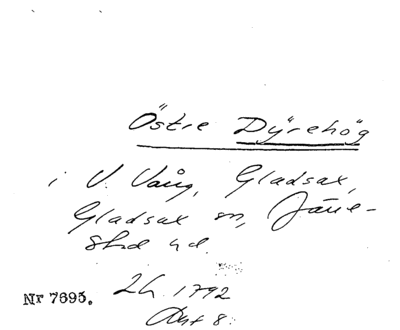 Östre Dÿrehög
i V. Vång, Gladsax,
Gladsax sn, Järre-
stad hd.
Nr 7695. LL 1792
Akt 8.